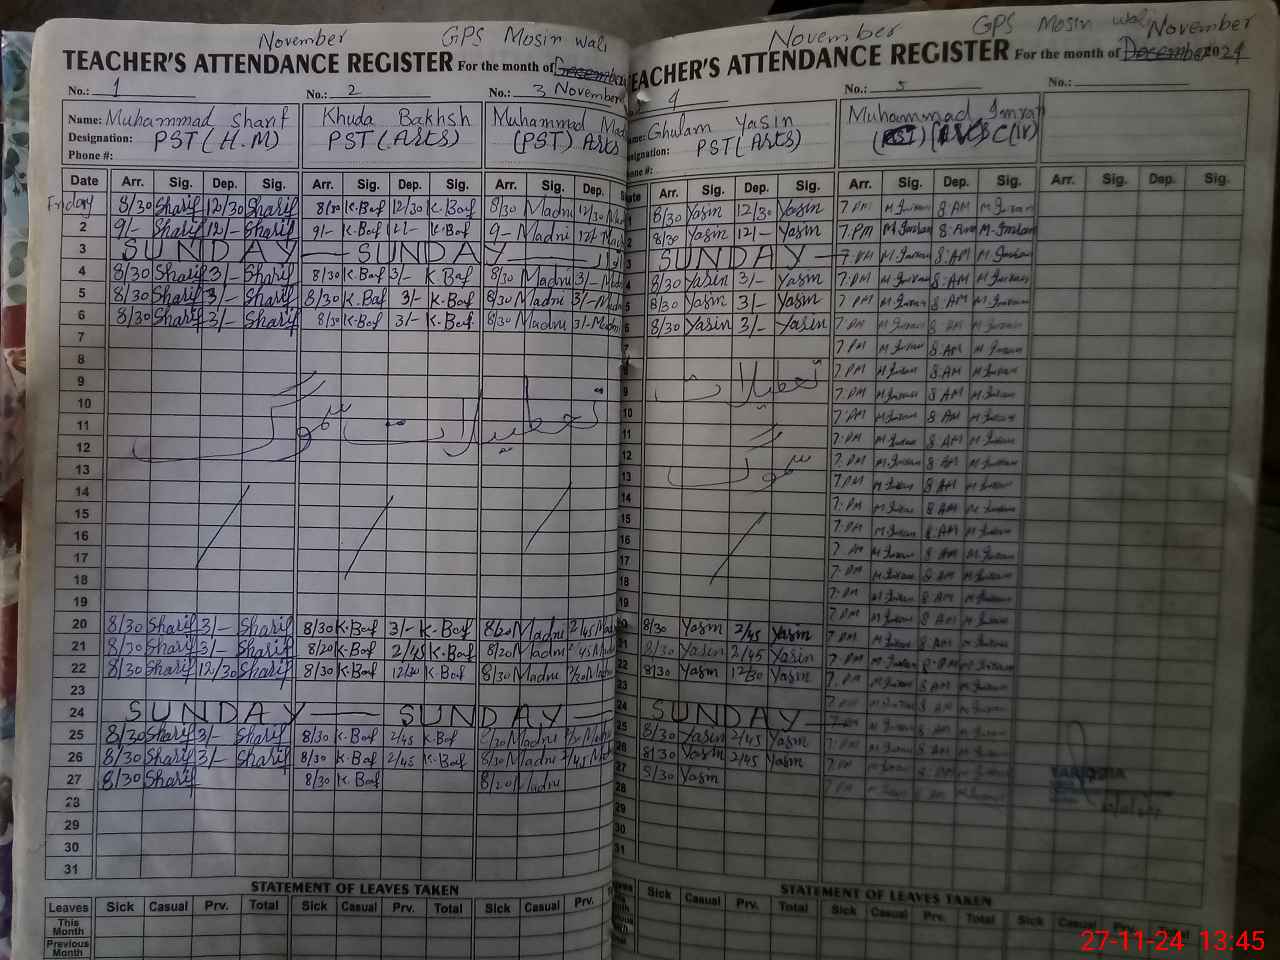 November GPS Mosin wali
TEACHER'S ATTENDANCE REGISTER For the month of December
No.: 1 No.: 2 No.: 3 November
Name: Muhammad Sharif Khuda Bakhsh Muhammad Mad
Designation: PST (H.M) PST (Arts) (PST) Arts
Phone #:
Date Arr. Sig. Dep. Sig. Arr. Sig. Dep. Sig. Arr. Sig. Dep.
Friday 8/30 Sharif 12/30 Sharif 8/30 K.Baf 12/30 K.Baf 8/30 Madni 12/30
2 9/- Sharif 12/- Sharif 9/- K.Baf 12/- K.Baf 9- Madni 12/-
3 SUNDAY SUNDAY
4 8/30 Sharif 3/- Sharif 8/30 K.Baf 3/- K.Baf 8/30 Madni 3/-
5 8/30 Sharif 3/- Sharif 8/30 K.Baf 3/- K.Baf 8/30 Madni 3/-
6 8/30 Sharif 3/- Sharif 8/30 K.Baf 3/- K.Baf 8/30 Madni 3/-
7
8
9
10
11 تعطیلات سموگ
12
13
14
15
16
17
18
19
20 8/30 Sharif 3/- Sharif 8/30 K.Baf 3/- K.Baf 8/20 Madni 2/45
21 8/30 Sharif 3/- Sharif 8/20 K.Baf 2/45 K.Baf 8/20 Madni 2/45
22 8/30 Sharif 12/30 Sharif 8/30 K.Baf 12/30 K.Baf 8/30 Madni
23
24 SUNDAY SUNDAY
25 8/30 Sharif 3/- Sharif 8/30 K.Baf 2/45 K.Baf Madni
26 8/30 Sharif 3/- Sharif 8/30 K.Baf 2/45 K.Baf 8/30 Madni 2/45
27 8/30 Sharif 8/30 K.Baf 8/20 Madni
28
29
30
31
STATEMENT OF LEAVES TAKEN
Leaves Sick Casual Prv. Total Sick Casual Prv. Total Sick Casual Prv.
This Month
Previous Month
November GPS Mosin wali November
TEACHER'S ATTENDANCE REGISTER For the month of December 2024
4 No.: 5 No.:
Name: Ghulam Yasin Muhammad Imran
Designation: PST (Arts) (PST) C(IV)
Phone #:
Date Arr. Sig. Dep. Sig. Arr. Sig. Dep. Sig. Arr. Sig. Dep. Sig.
1 8/30 Yasin 12/30 Yasin 7 PM M Imran 8 AM M Imran
2 8/30 Yasin 12/- Yasin 7.PM M Imran 8 AM M Imran
3 SUNDAY 7.PM M Imran 8.AM M Imran
4 8/30 Yasin 3/- Yasin 7.PM M Imran 8.AM M Imran
5 8/30 Yasin 3/- Yasin 7 PM M Imran 8.AM M Imran
6 8/30 Yasin 3/- Yasin 7.PM M Imran 8 AM M Imran
7 7.PM M Imran 8.AM M Imran
8 7.PM M Imran 8 AM M Imran
9 تعطیلات 7.PM M Imran 8 AM M Imran
10 7.PM M Imran 8 AM M Imran
11 7.PM M Imran 8 AM M Imran
12 7.PM M Imran 8 AM M Imran
13 سموگ 7.PM M Imran 8 AM M Imran
14 7.PM M Imran 8 AM M Imran
15 7.PM M Imran 8 AM M Imran
16 7.PM M Imran 8 AM M Imran
17 7.PM M Imran 8 AM M Imran
18 7.PM M Imran 8 AM M Imran
19 7.PM M Imran 8 AM M Imran
20 8/30 Yasin 2/45 Yasin 7 PM M Imran 8 AM M Imran
21 8/30 Yasin 2/45 Yasin 7.PM M Imran 8 AM M Imran
22 8/30 Yasin 12/30 Yasin 7.PM M Imran 8 AM M Imran
23 7.PM M Imran 8 AM M Imran
24 SUNDAY 7.PM M Imran 8 AM M Imran
25 8/30 Yasin 2/45 Yasin 7.PM M Imran 8 AM M Imran
26 8/30 Yasin 2/45 Yasin 7.PM M Imran 8 AM M Imran
27 8/30 Yasin 7 PM 8 AM
28
29
30
31
STATEMENT OF LEAVES TAKEN
Leaves Sick Casual Prv. Total Sick Casual Prv. Total Sick Casual Prv. Total
27-11-24 13:45